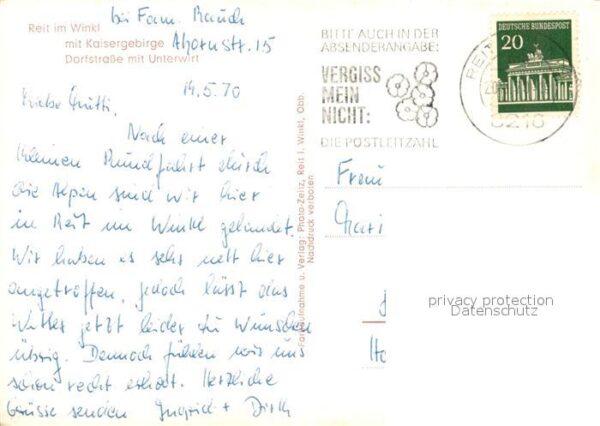 bei Fam. Rauch
Ahornstr. 15
Reit im Winkl
mit Kaisergebirge
Dorfstraße mit Unterwirt
19.5.70
Liebe Mutti,
Nach einer
kleinen Rundfahrt durch
die Alpen sind wir hier
in Reit im Winkl gelandet.
Wir haben es sehr nett hier
angetroffen, jedoch lässt das
Wetter jetzt leider zu Wünschen
übrig. Dennoch fühlen wir uns
schon recht erholt. Herzliche
Grüsse senden Ingrid + Dirk
Farbaufnahme u. Verlag: Photo-Zeliz, Reit i. Winkl, Obb.
Nachdruck verboten
BITTE AUCH IN DER
ABSENDERANGABE:
VERGISS
MEIN
NICHT:
DIE POSTLEITZAHL
REIT
8216
DEUTSCHE BUNDESPOST
20
Frau
privacy protection
Datenschutz